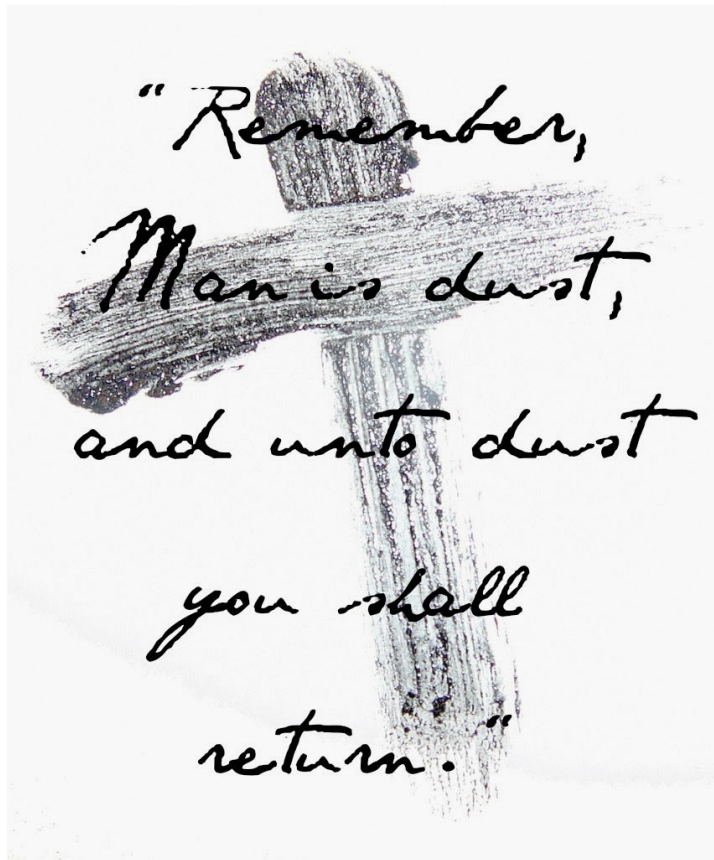 “Remember,
Man is dust,
and unto dust
you shall
return.“